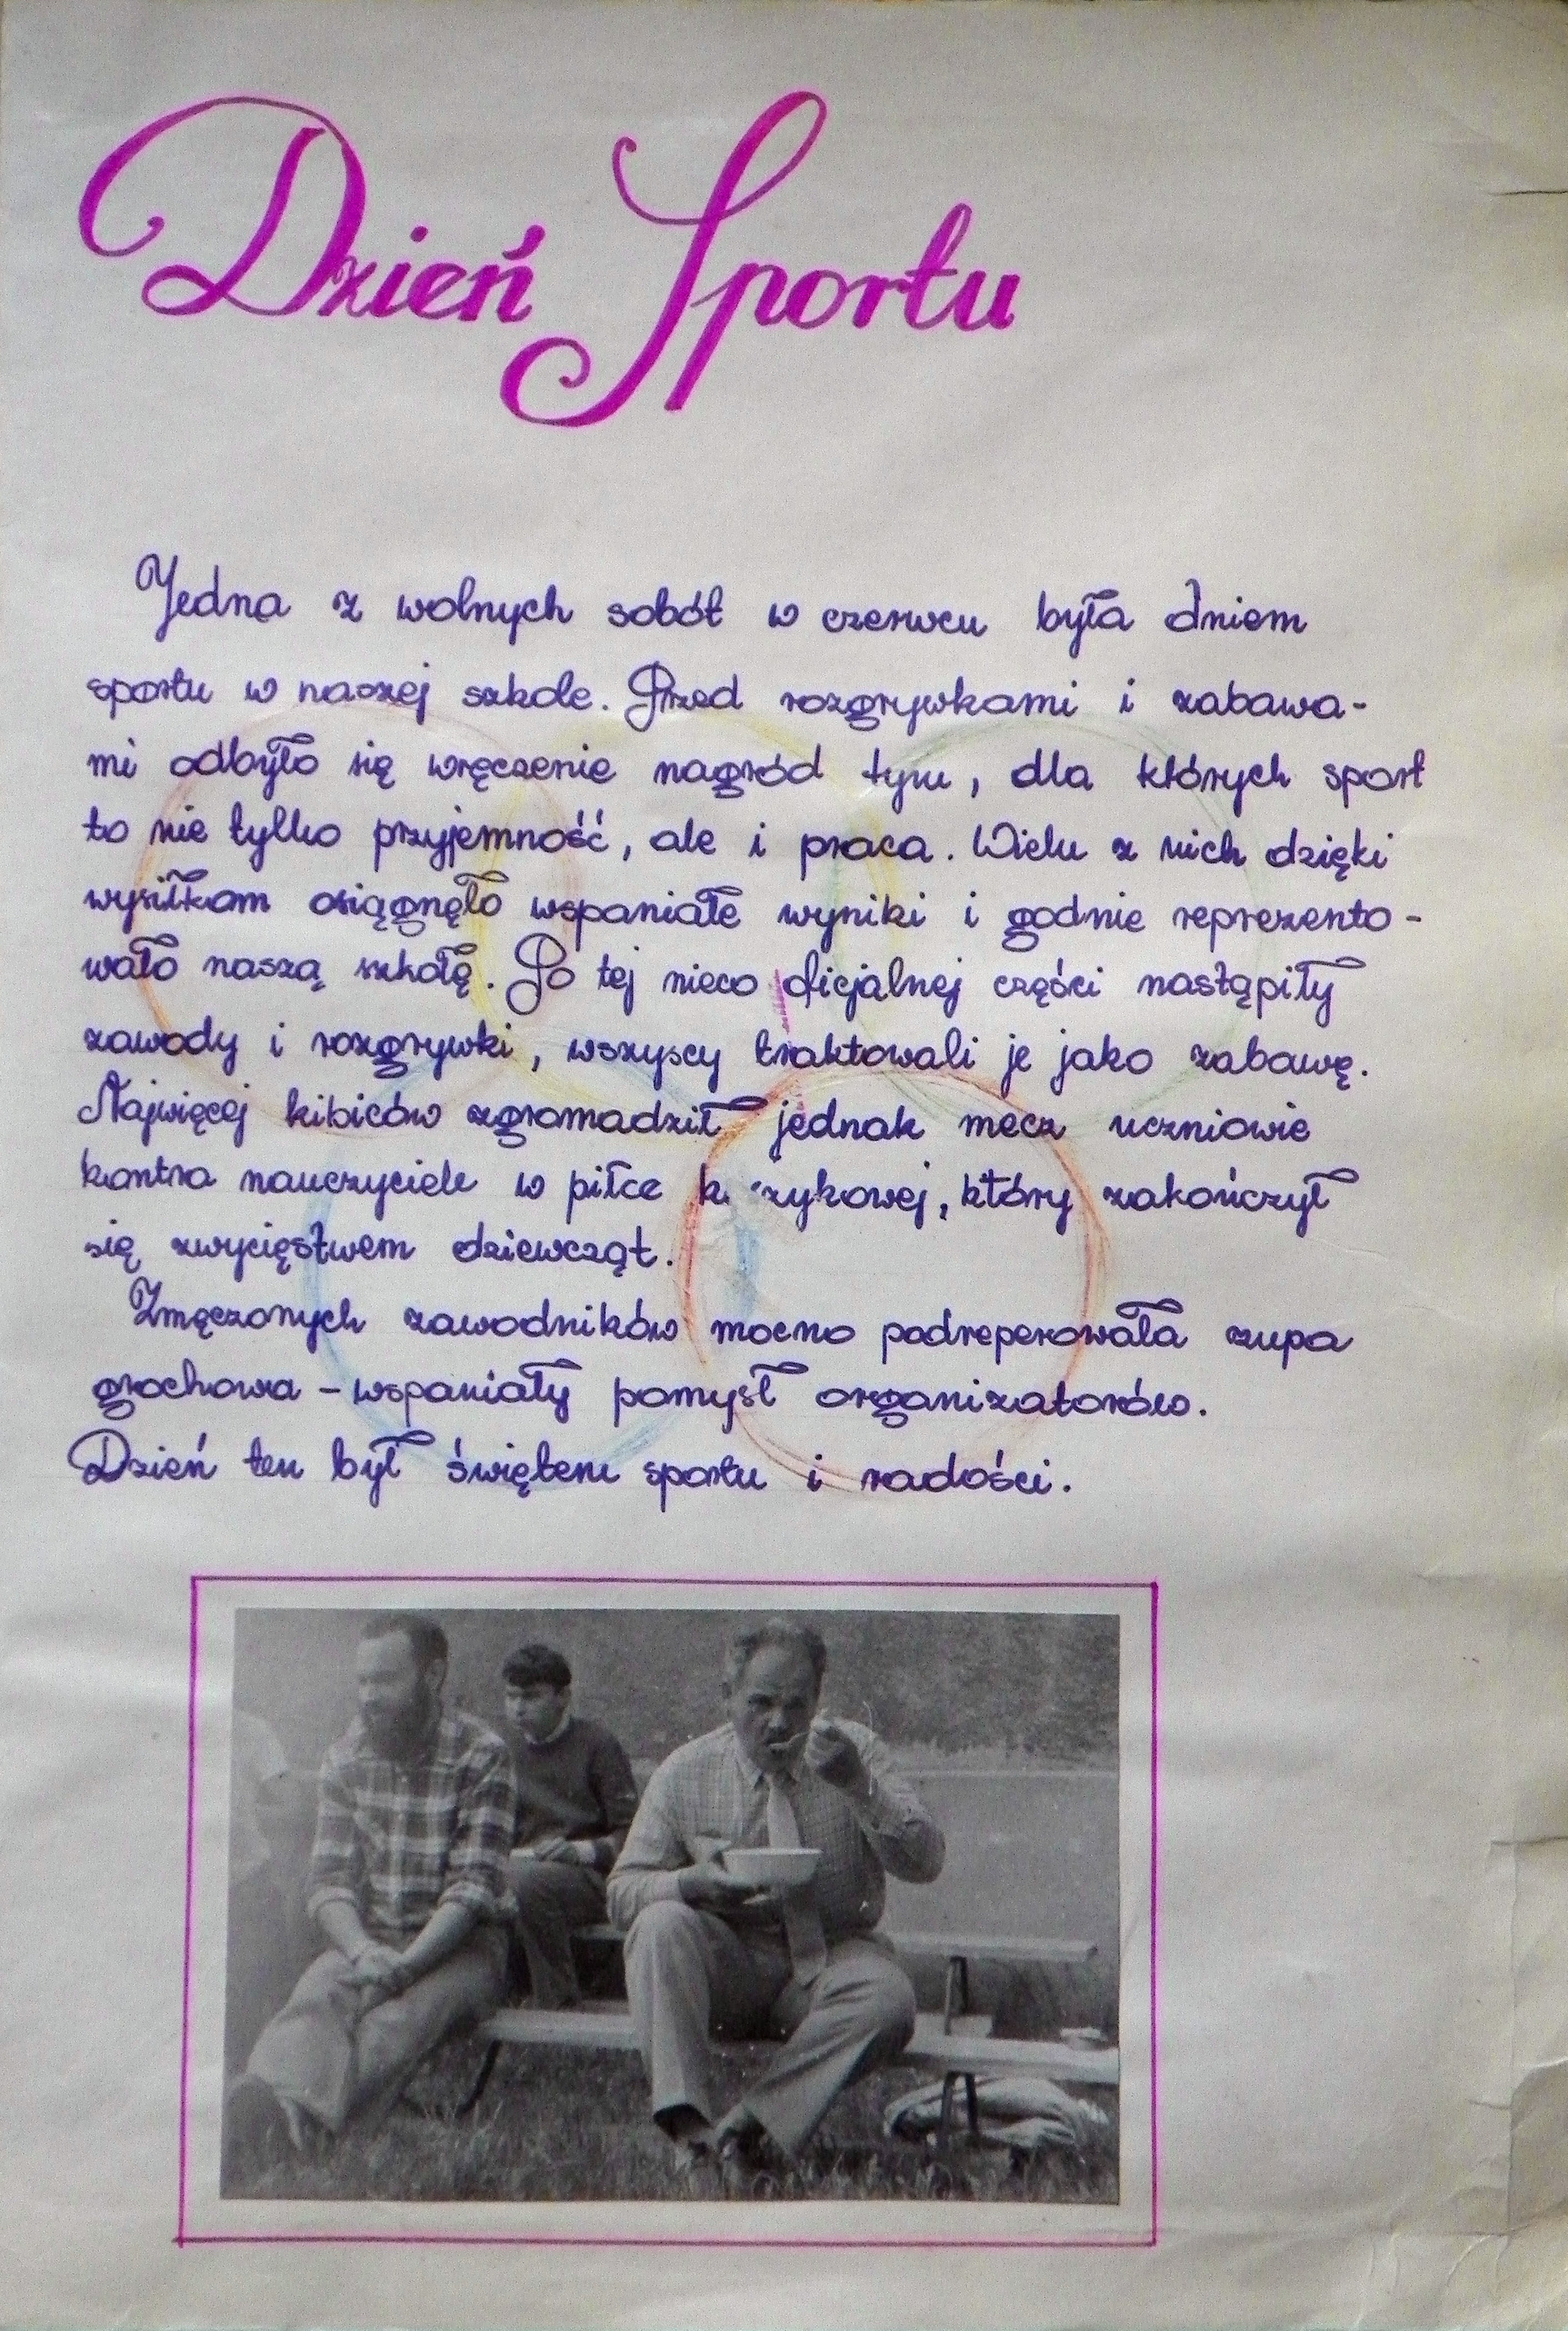 Dzień Sportu
Jedna z wolnych sobót w czerwcu była dniem
sportu w naszej szkole. Przed rozgrywkami i zabawa-
mi odbyło się wręczenie nagród tym, dla których sport
to nie tylko przyjemność, ale i praca. Wielu z nich dzięki
wysiłkom osiągnęło wspaniałe wyniki i godnie reprezento-
wało naszą szkołę. Po tej nieco oficjalnej części nastąpiły
zawody i rozgrywki, wszyscy traktowali je jako zabawę.
Najwięcej kibiców zgromadził jednak mecz uczniowie
kontra nauczyciele w piłce k zykowej, który zakończył
się zwycięstwem dziewcząt.
Zmęczonych zawodników mocno podreperowała zupa
grochowa – wspaniały pomysł organizatorów.
Dzień ten był świętem sportu i radości.